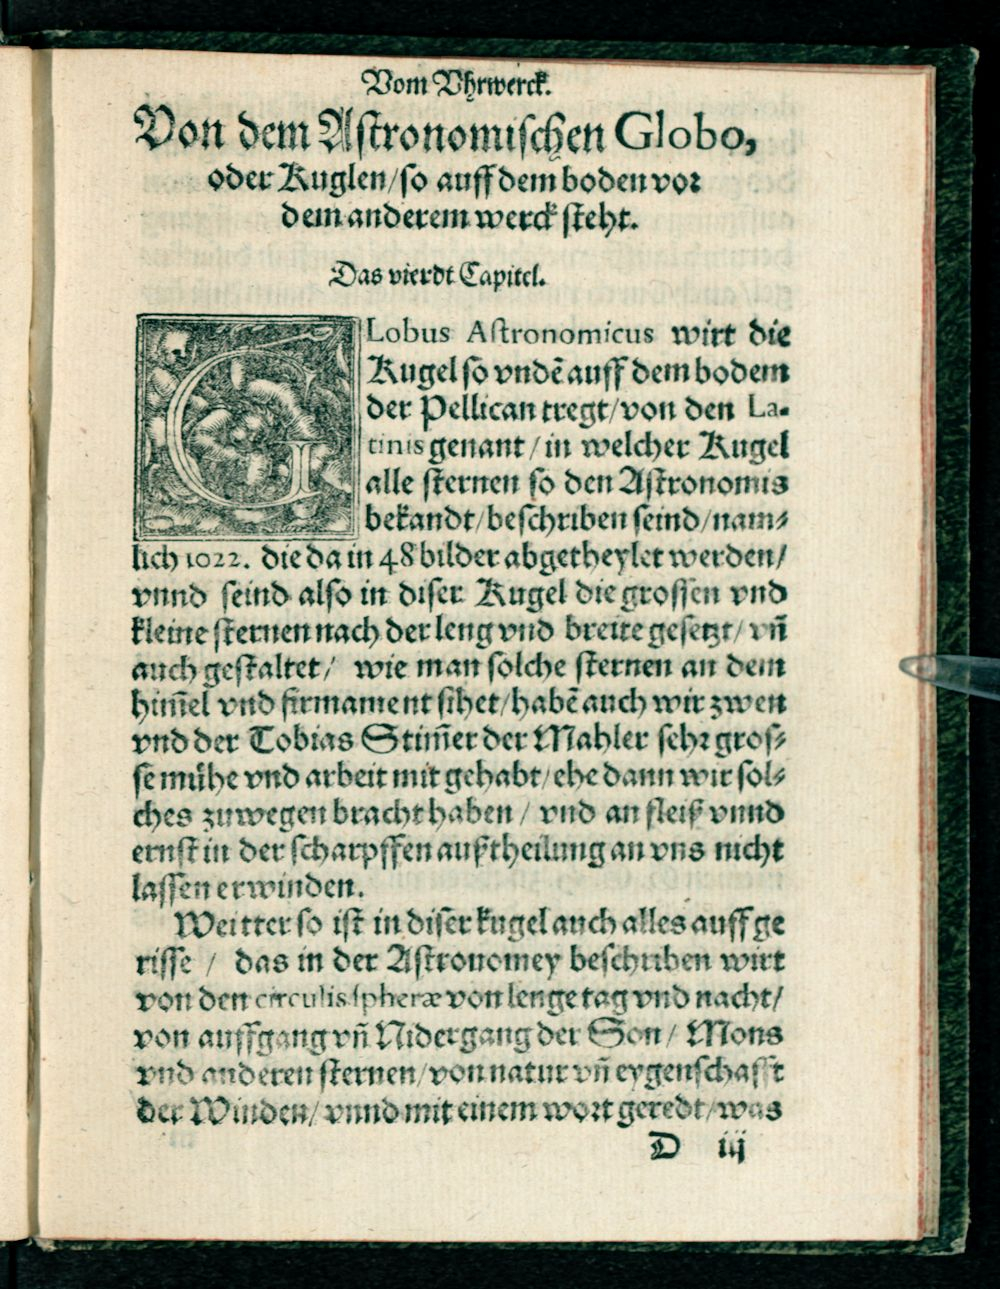 Vom Vhrwerck.
Von dem Astronomischen Globo,
oder Kuglen/so auff dem boden vor
dem anderem werck steht.
Das vierdt Capitel.
GLobus Astronomicus wirt die
Kugel so vndē auff dem bodem
der Pellican tregt/von den La-
tinis genant/in welcher Kugel
alle sternen so den Astronomis
bekandt/beschriben seind/nam-
lich 1022. die da in 48 bilder abgetheylet werden/
vnnd seind also in diser Kugel die grossen vnd
kleine sternen nach der leng vnd breite gesetzt/vñ
auch gestaltet/ wie man solche sternen an dem
him̃el vnd firmament sihet/habē auch wir zwen
vnd der Tobias Stim̃er der Mahler sehr gros-
se mühe vnd arbeit mit gehabt/ehe dann wir sol-
ches zuwegen bracht haben/ vnd an fleiß vnnd
ernst in der scharpffen außtheilung an vns nicht
lassen erwinden.
Weitter so ist in diser kugel auch alles auff ge
risse/ das in der Astronomey beschriben wirt
von den circulis spheræ von lenge tag vnd nacht/
von auffgang vñ Nidergang der Son/ Mons
vnd anderen sternen/von natur vñ eygenschafft
der Winden/vnnd mit einem wort geredt/was
D iij